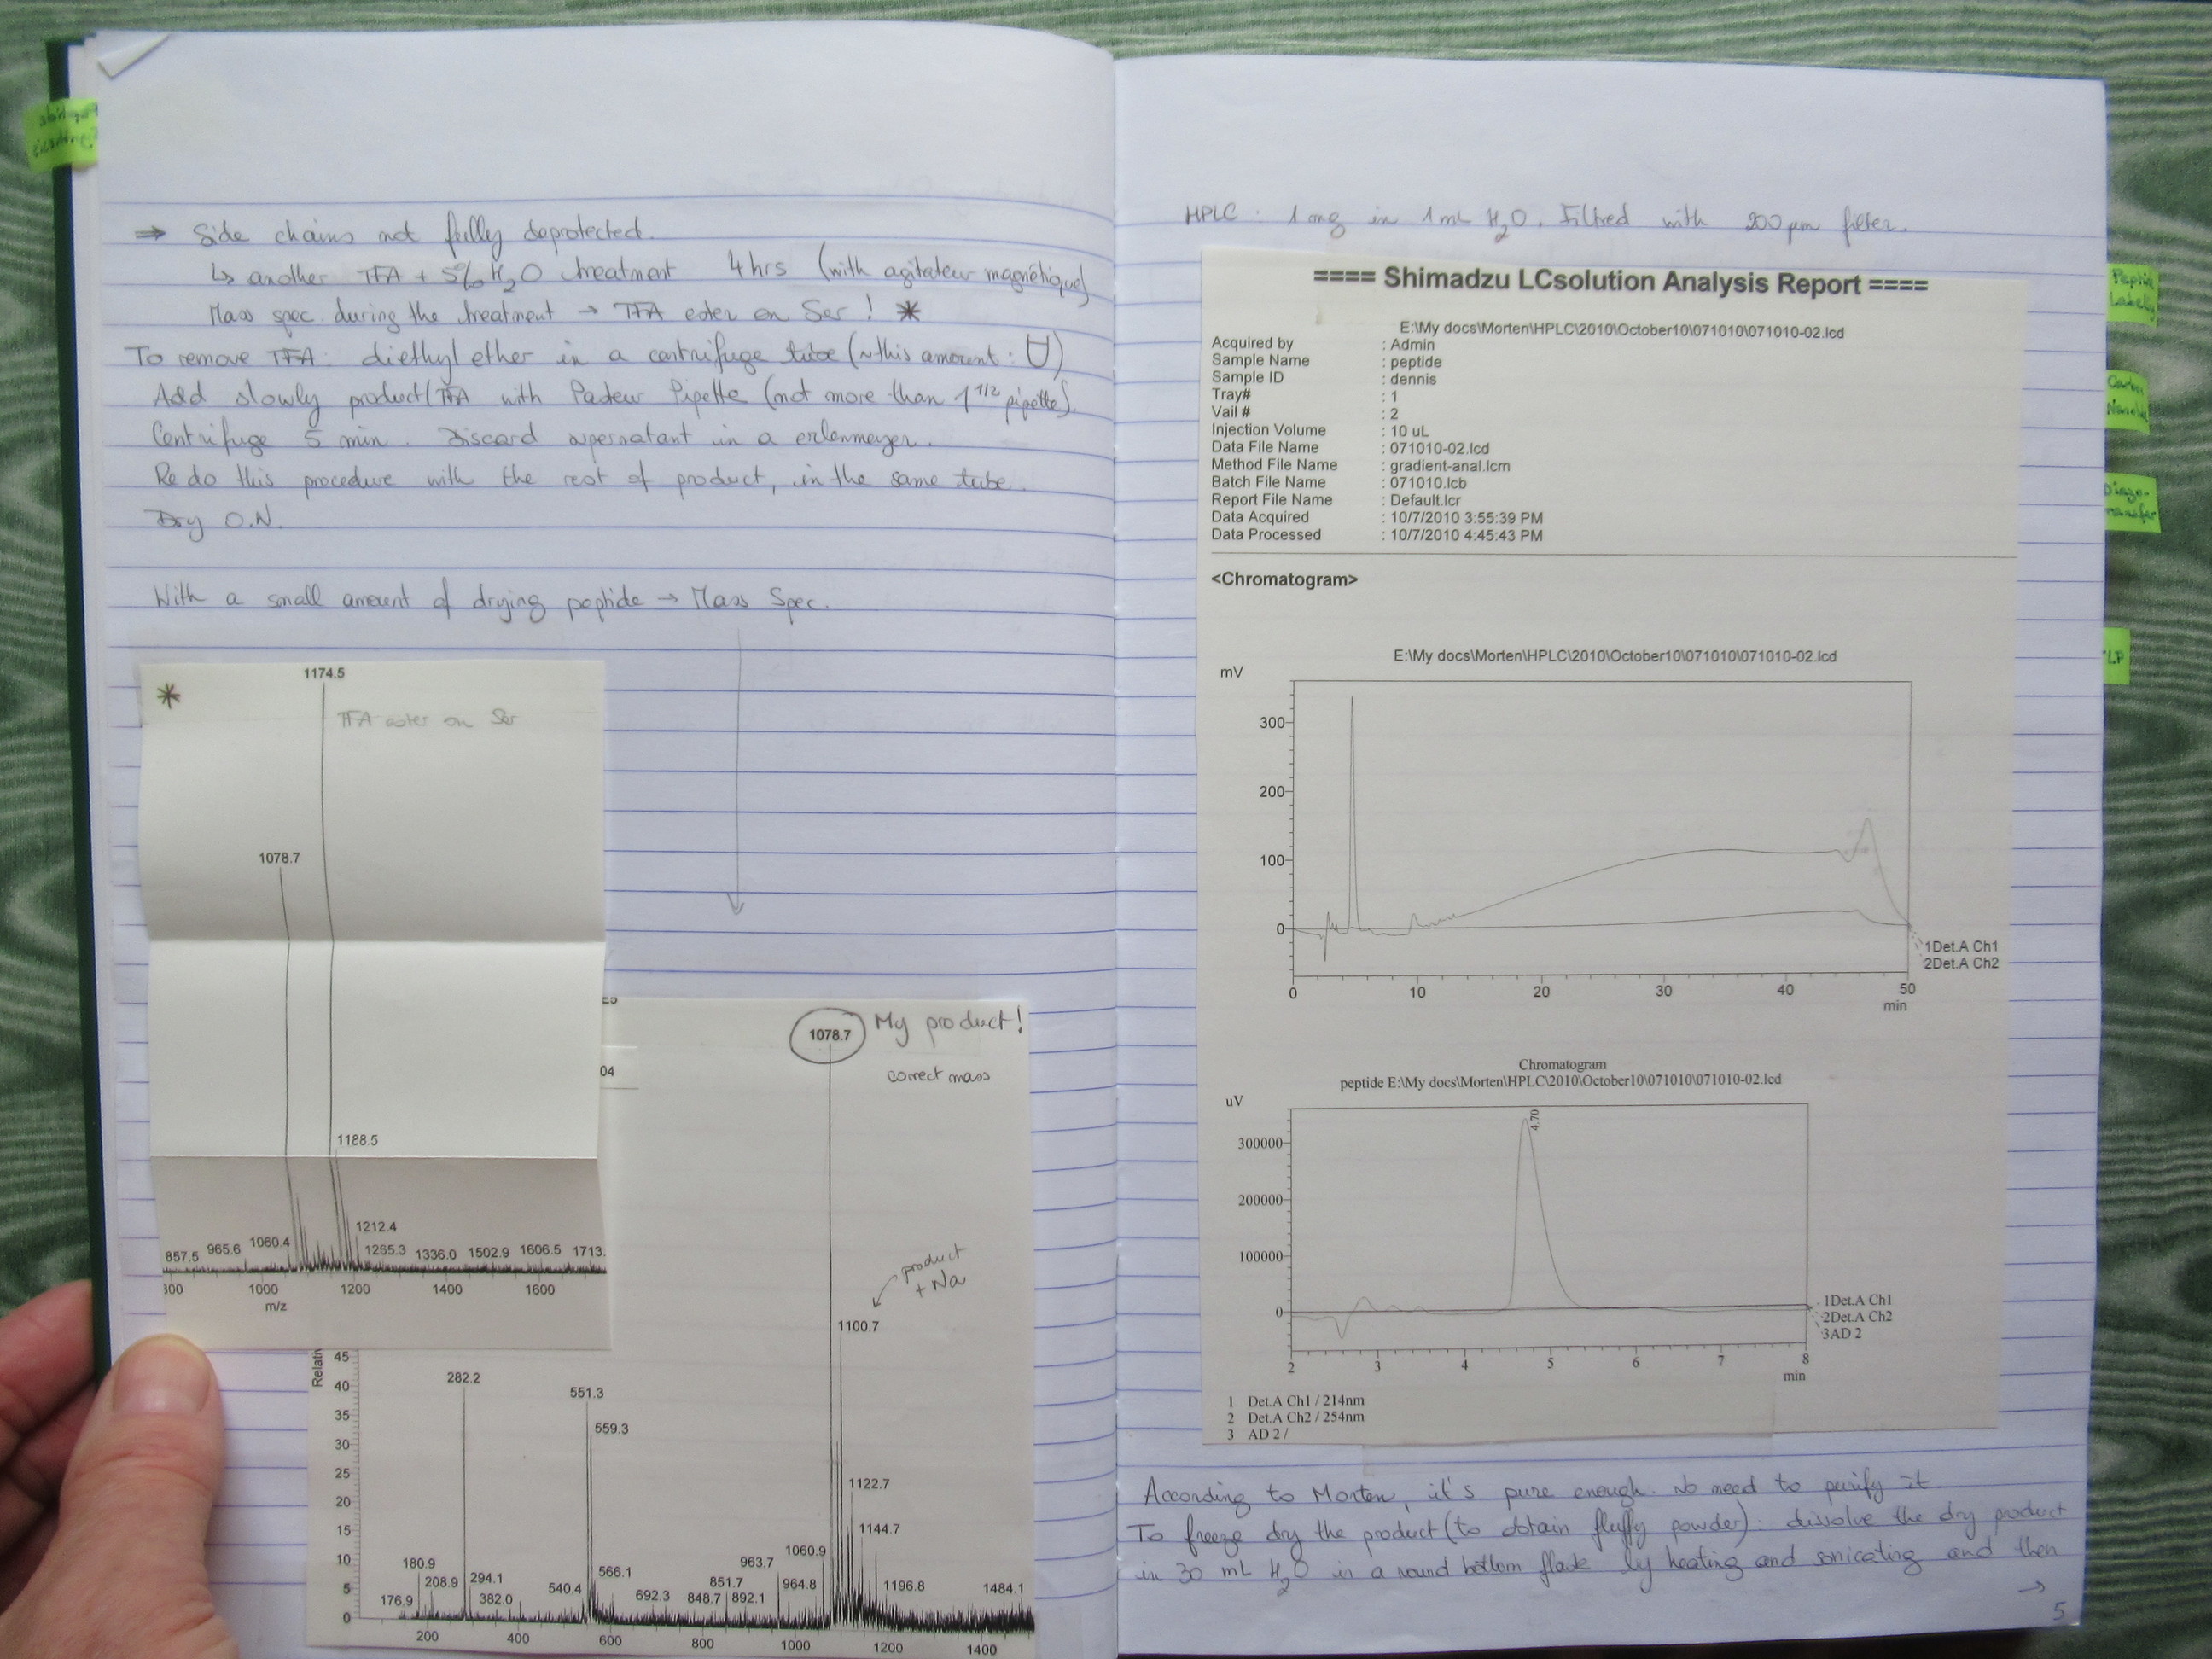 ⇒ Side chains not fully deprotected.
↳ another TFA + 5% H2O treatment 4hrs (with agitateur magnétique)
Mass spec. during the treatment → TFA ester on Ser ! *
To remove TFA: diethyl ether in a centrifuge tube (~this amount: U)
Add slowly product/TFA with Pasteur Pipette (not more than 1 1/2 pipette).
Centrifuge 5 min. Discard supernatant in a erlenmeyer.
Re do this procedure with the rest of product, in the same tube.
Dry O.N.
With a small amount of drying peptide → Mass Spec.
*
1174.5
TFA ester on Ser
1078.7
1188.5
1212.4
857.5 965.6 1060.4 1255.3 1336.0 1502.9 1606.5 1713.
800 1000 1200 1400 1600
m/z
04
1078.7 My product!
correct mass
product
+ Na
1100.7
Relativ
282.2
551.3
559.3
1122.7
1144.7
1060.9
963.7
180.9
208.9
294.1
566.1
851.7
964.8
1196.8
1484.1
176.9
382.0
540.4
692.3
848.7
892.1
45
40
35
30
25
20
15
10
5
0
200 400 600 800 1000 1200 1400
HPLC : 1 mg in 1 mL H2O. Filtred with 200 µm filter.
==== Shimadzu LCsolution Analysis Report ====
E:\My docs\Morten\HPLC\2010\October10\071010\071010-02.lcd
Acquired by : Admin
Sample Name : peptide
Sample ID : dennis
Tray# : 1
Vail # : 2
Injection Volume : 10 uL
Data File Name : 071010-02.lcd
Method File Name : gradient-anal.lcm
Batch File Name : 071010.lcb
Report File Name : Default.lcr
Data Acquired : 10/7/2010 3:55:39 PM
Data Processed : 10/7/2010 4:45:43 PM
<Chromatogram>
E:\My docs\Morten\HPLC\2010\October10\071010\071010-02.lcd
mV
300
200
100
0
1Det.A Ch1
2Det.A Ch2
0 10 20 30 40 50
min
Chromatogram
peptide E:\My docs\Morten\HPLC\2010\October10\071010\071010-02.lcd
uV
4.70
300000
200000
100000
0
1Det.A Ch1
2Det.A Ch2
3AD 2
2 3 4 5 6 7 8
min
1 Det.A Ch1 / 214nm
2 Det.A Ch2 / 254nm
3 AD 2 /
According to Morten, it's pure enough. No need to purify it.
To freeze dry the product (to obtain fluffy powder): dissolve the dry product
in 30 mL H2O in a round bottom flask by heating and sonicating and then
→
5
Peptide
Labelling